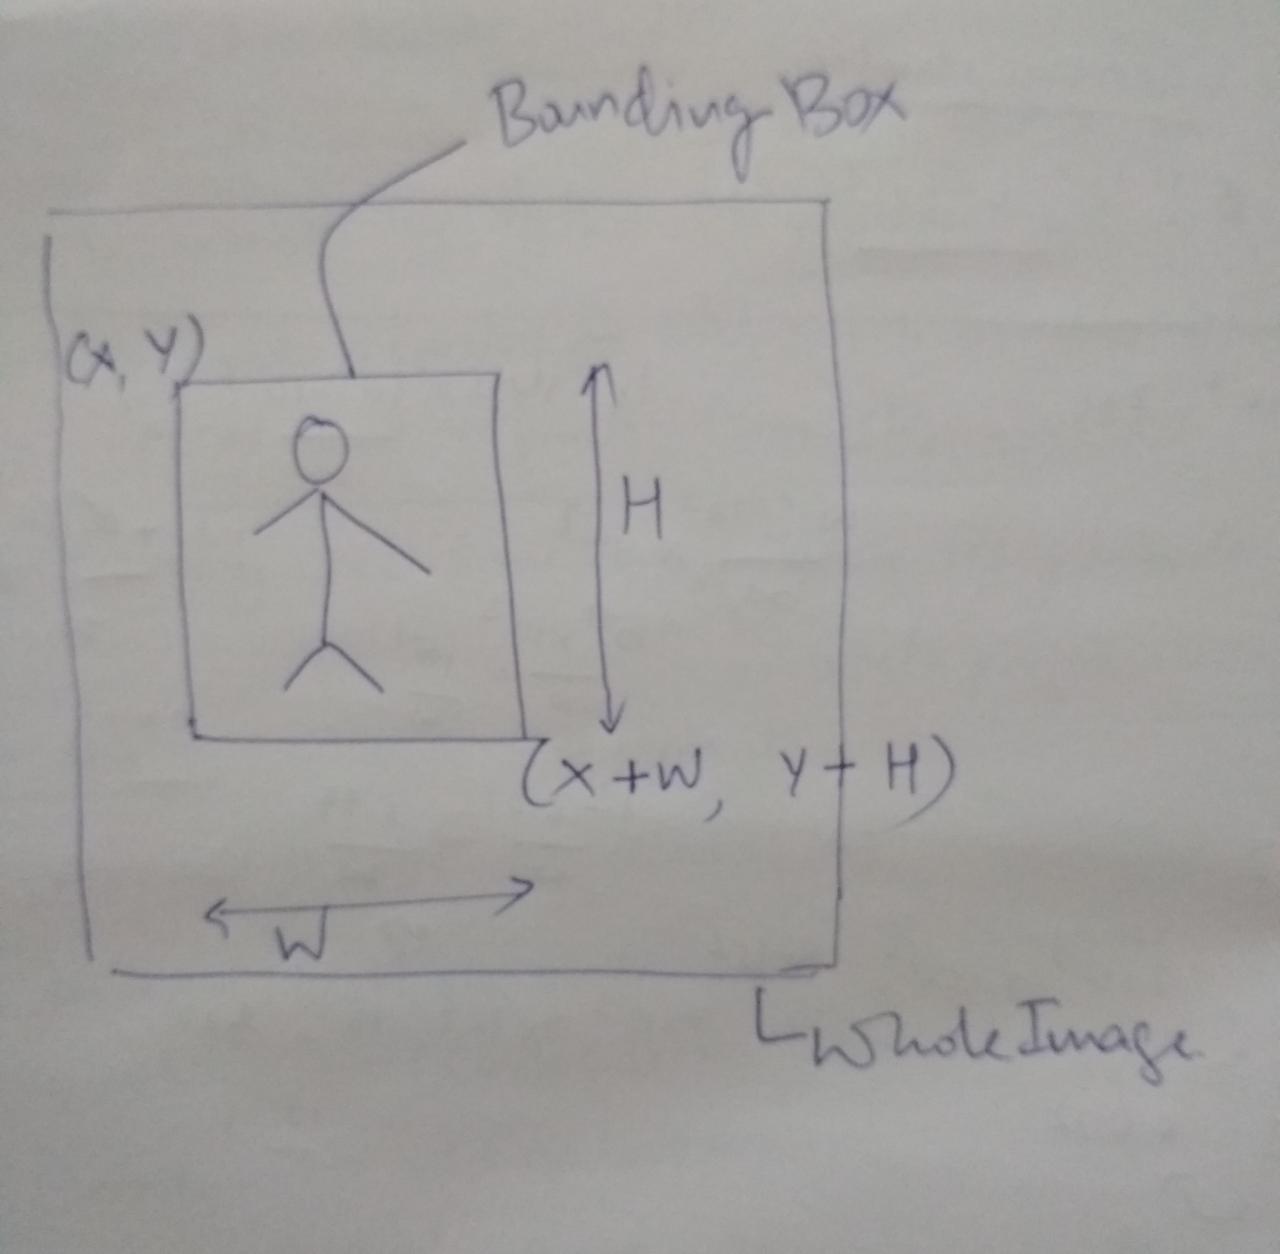 Bounding Box
(X, Y)
H
(X + W, Y + H)
W
Whole Image